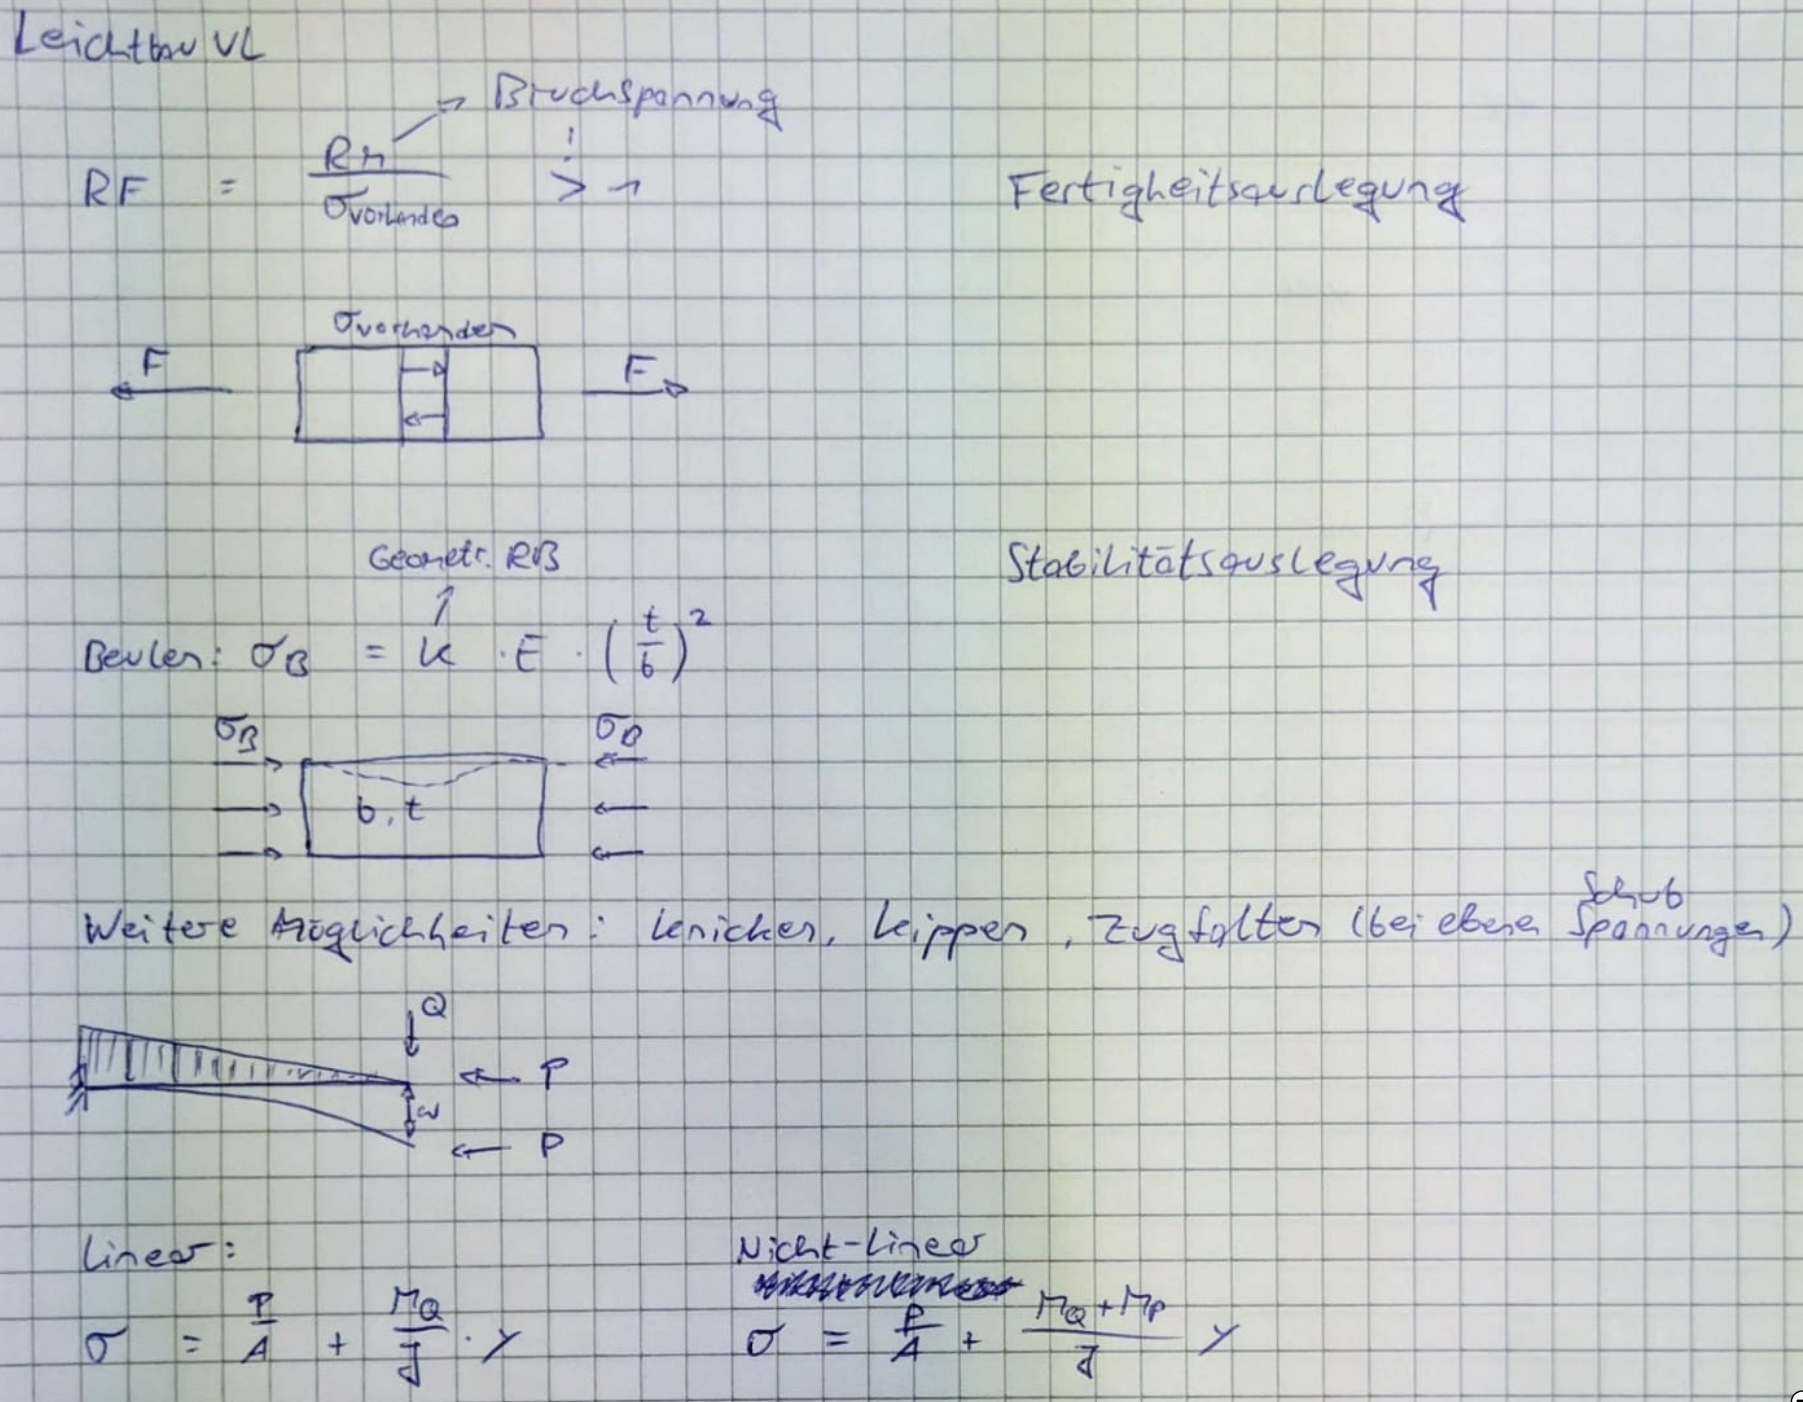 Leichtbau VL
Bruchspannung
RF = Rm / σvorhanden > 1 !
Fertigheitsauslegung
σvorhanden
F F
Geometr. RB
Stabilitätsauslegung
Beulen: σB = k · E · (t/b)²
σB σB
b, t
Schub
Weitere Möglichkeiten: Knicken, Kippen, Zugfalten (bei ebenen Spannungen)
Q
P
w
P
Linear: Nicht-Linear
σ = P/A + MQ/J · y σ = P/A + (MQ + MP)/J y